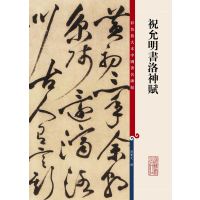 彩色放大本中國著名碑帖
祝允明書洛神賦
黃初三年余
京師還濟洛
川古人有